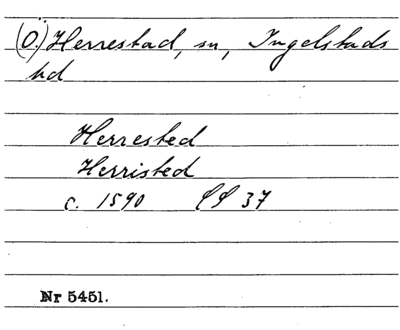 (Ö.) Herrestad, sn, Ingelstads
hd
Herrested
Herristed
c. 1590 PP 37
Nr 5451.